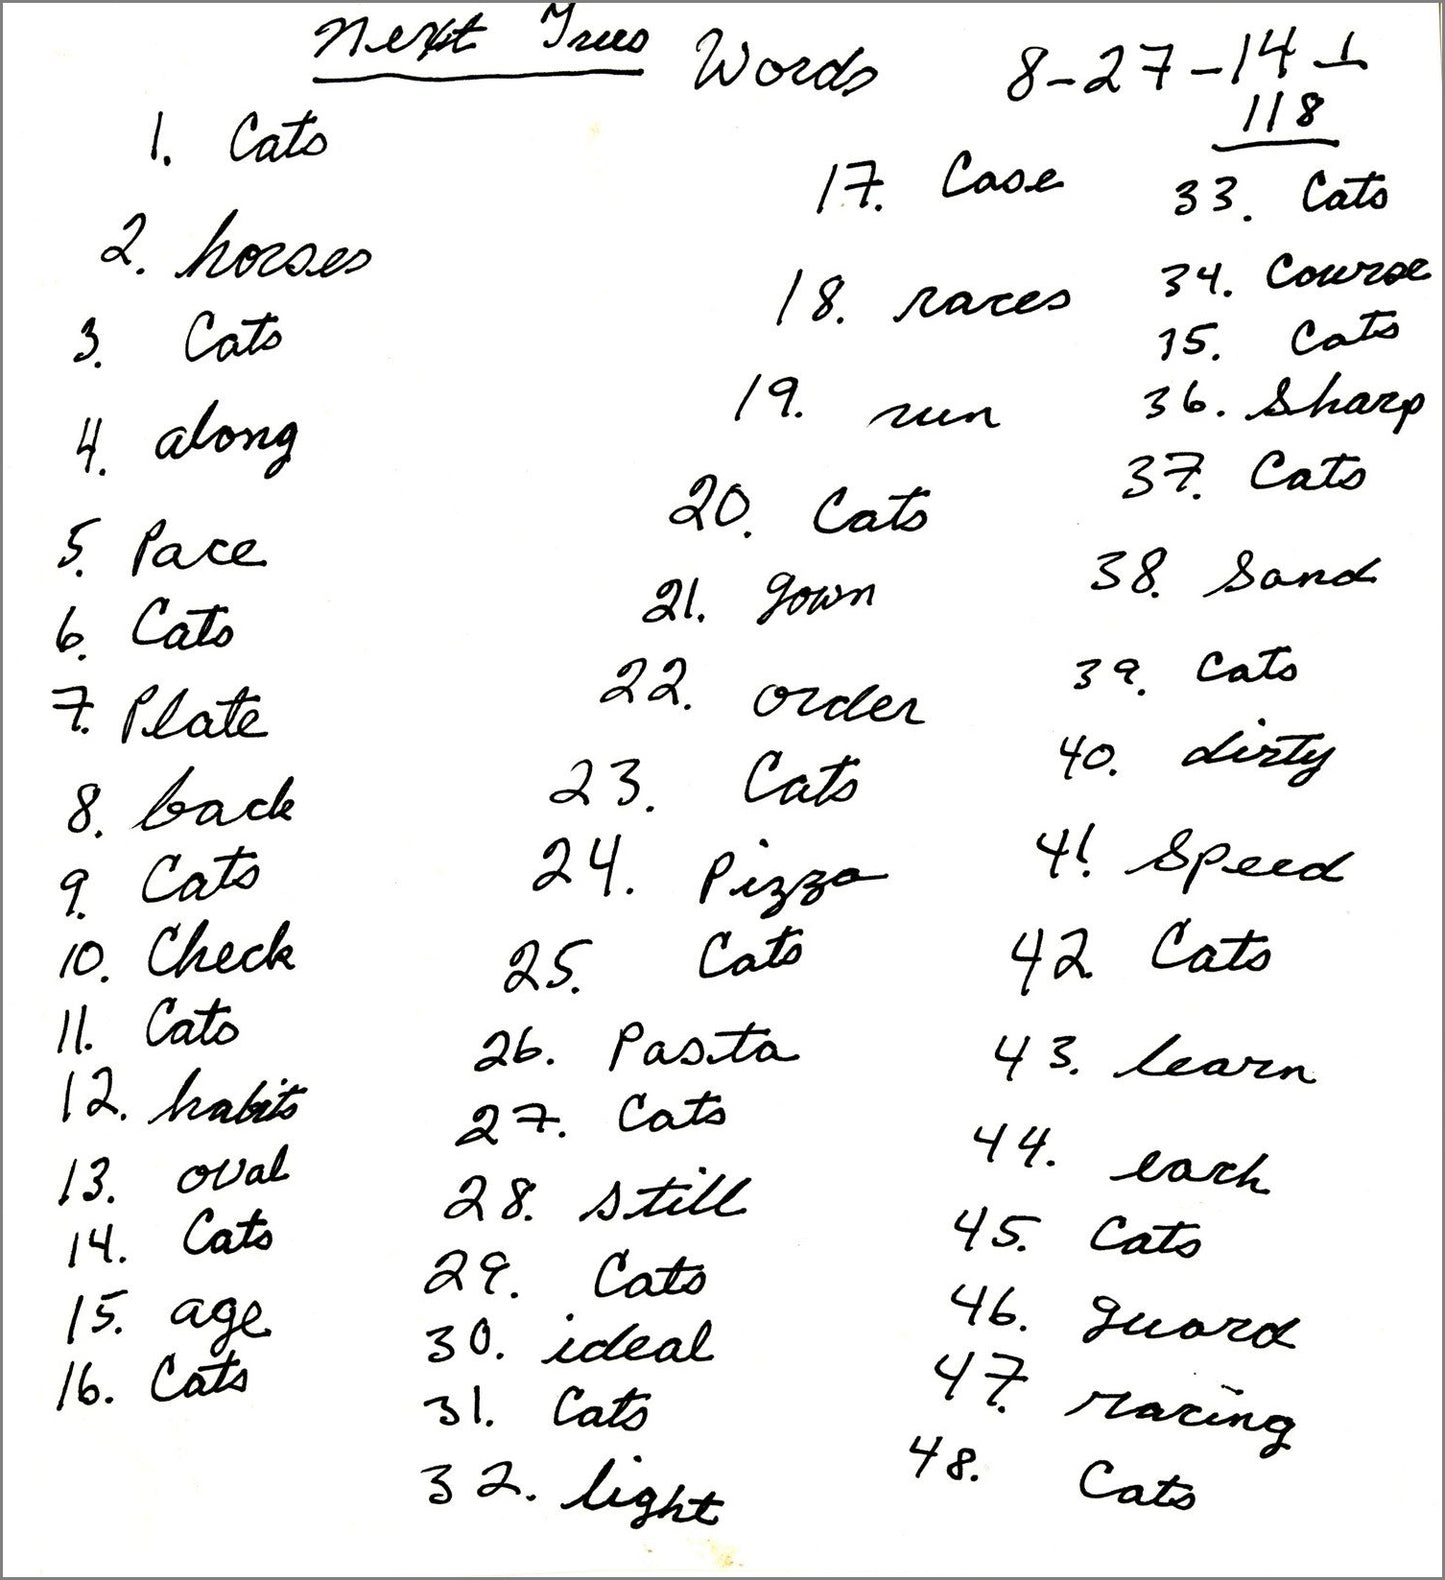 Next Trees Words 8-27-14 ⊥
118
1. Cats
2. horses
3. Cats
4. along
5. Pace
6. Cats
7. Plate
8. back
9. Cats
10. Check
11. Cats
12. habits
13. oval
14. Cats
15. age
16. Cats
17. Case
18. races
19. run
20. Cats
21. gown
22. order
23. Cats
24. Pizza
25. Cats
26. Pasta
27. Cats
28. still
29. Cats
30. ideal
31. Cats
32. light
33. Cats
34. Course
35. Cats
36. Sharp
37. Cats
38. Sand
39. Cats
40. dirty
41. Speed
42. Cats
43. learn
44. each
45. Cats
46. guard
47. racing
48. Cats